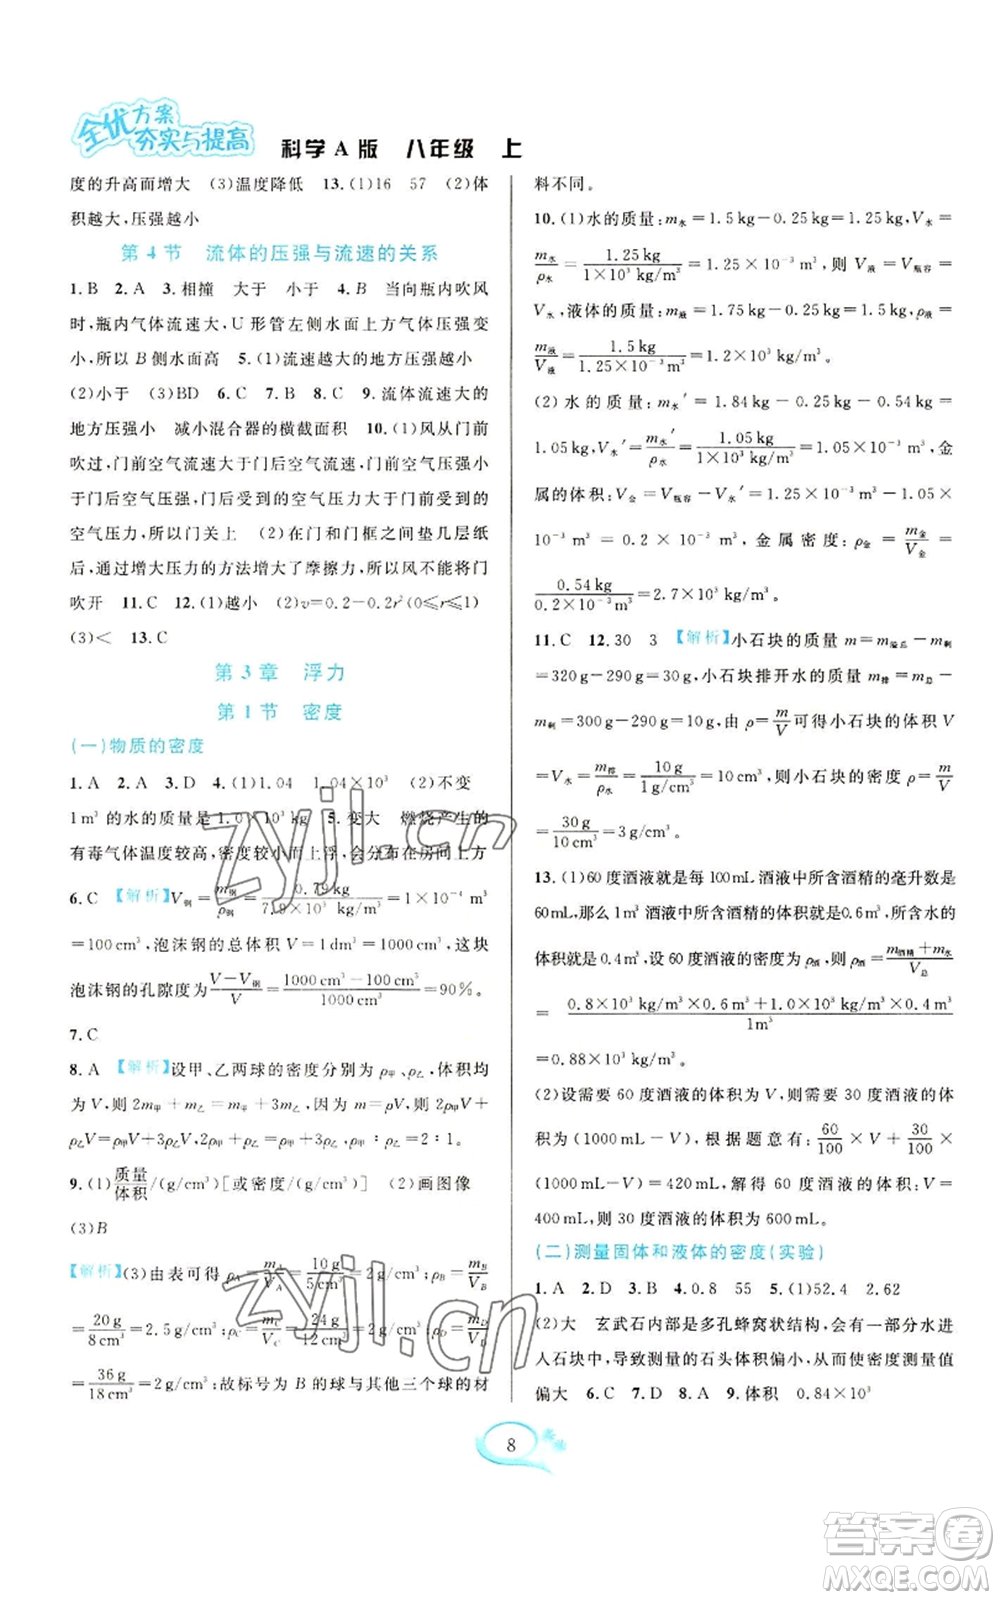 全优方案
夯实与提高
科学A版 八年级 上
度的升高而增大 (3)温度降低 13.(1)16 57 (2)体
积越大,压强越小
第4节 流体的压强与流速的关系
1.B 2.A 3.相撞 大于 小于 4.B 当向瓶内吹风
时,瓶内气体流速大,U形管左侧水面上方气体压强变
小,所以B侧水面高 5.(1)流速越大的地方压强越小
(2)小于 (3)BD 6.C 7.B 8.C 9.流体流速大的
地方压强小 减小混合器的横截面积 10.(1)风从门前
吹过,门前空气流速大于门后空气流速,门前空气压强小
于门后空气压强,门后受到的空气压力大于门前受到的
空气压力,所以门关上 (2)在门和门框之间垫几层纸
后,通过增大压力的方法增大了摩擦力,从而不能将门
吹开 11.C 12.(1)越小 (2)v=0.2-0.2r²(0≤r≤1)
(3)< 13.C
第3章 浮力
第1节 密度
(一)物质的密度
1.A 2.A 3.D 4.(1)1.04 1.04×10³ (2)不变
1m³的水的质量是1.0×10³ kg 5.变大 燃烧产生的
有毒气体温度较高,密度较小而上浮,会分布在房间上方
6.C 【解析】V钢=m钢/ρ钢=0.79 kg/7.9×10³ kg/m³=1×10⁻⁴ m³
=100cm³,泡沫钢的总体积V=1dm³=1000cm³,这块
泡沫钢的孔隙度为(V-V钢)/V=(1000cm³-100cm³)/1000cm³=90%。
7.C
8.A 【解析】设甲、乙两球的密度分别为ρ甲、ρ乙,体积
为V,则2m甲+m乙=3m乙,因为m=ρV,则2ρ甲V+
ρ乙V=ρ甲V+3ρ乙V,所以ρ甲:ρ乙=2:1。
9.(1)质量/体积/(g/cm³)[或密度/(g/cm³)] (2)画图像
(3)B
【解析】(3)由表可得ρA=mA/VA=10g/5cm³=2g/cm³;ρB=mB/VB
=20g/8cm³=2.5g/cm³;ρC=mC/VC=24g/12cm³=2g/cm³;ρD=mD/VD
=36g/18cm³=2g/cm³;故标号为B的球与其他三个球的材
料不同。
10.(1)水的质量:m水=1.5kg-0.25kg=1.25kg,V水=
m水/ρ水=1.25kg/1×10³ kg/m³=1.25×10⁻³ m³,则V液=V瓶容=
V水,液体的质量:m液=1.75kg-0.25kg=1.5kg,ρ液=
m液/V液=1.5kg/1.25×10⁻³ m³=1.2×10³ kg/m³。
(2)水的质量:m水′=1.84kg-0.25kg-0.54kg=
1.05kg,V水′=m水′/ρ水=1.05kg/1×10³ kg/m³=1.05×10⁻³ m³,金
属的体积:V金=V瓶容-V水′=1.25×10⁻³ m³-1.05×
10⁻³ m³=0.2×10⁻³ m³,金属密度:ρ金=m金/V金=
0.54kg/0.2×10⁻³ m³=2.7×10³ kg/m³。
11.C 12.30 3 【解析】小石块的质量m=m溢总-m剩
=320g-290g=30g;小石块排开水的质量m排=m总-
m剩=300g-290g=10g,由ρ=m/V可得小石块的体积V
=V水=m排/ρ水=10g/1g/cm³=10cm³,小石块的密度ρ=m/V
=30g/10cm³=3g/cm³。
13.(1)60度酒液就是每100mL酒液中所含酒精的毫升数是
60mL,那么1m³酒液中所含酒精的体积就是0.6m³,所含水的
体积就是0.4m³,设60度酒液的密度为ρ酒,则ρ酒=(m酒精+m水)/V总
=(0.8×10³ kg/m³×0.6m³+1.0×10³ kg/m³×0.4m³)/1m³
=0.88×10³ kg/m³。
(2)设需要60度酒液的体积为V,则需要30度酒液的体
积为(1000mL-V),根据题意有:60/100×V+30/100×
(1000mL-V)=420mL,解得60度酒液的体积:V=
400mL,则30度酒液的体积为600mL。
(二)测量固体和液体的密度(实验)
1.A 2.D 3.B 4.0.8 55 5.(1)52.4 2.62
(2)大 玄武石内部是多孔蜂窝状结构,会有一部分水进
入石块中,导致测量的石头体积偏小,从而使密度测量值
偏大 6.C 7.D 8.A 9.体积 0.84×10³
8
zyjl.cn
zyjl.cn
答案圈
MXQE.COM